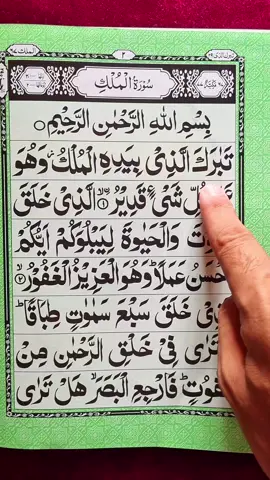 ٢
سُورَةُ الْمُلْكِ
بِسْمِ اللهِ الرَّحْمٰنِ الرَّحِيْمِ
تَبٰرَكَ الَّذِىْ بِيَدِهِ الْمُلْكُ وَهُوَ
شَىْءٍ قَدِيْرُ ۙ﴿١﴾ الَّذِىْ خَلَقَ
وَالْحَيٰوةَ لِيَبْلُوَكُمْ اَيُّكُمْ
عَمَلًا ؕ وَهُوَ الْعَزِيْزُ الْغَفُوْرُ ۙ﴿٢﴾
خَلَقَ سَبْعَ سَمٰوٰتٍ طِبَاقًا ؕ
تَرٰى فِىْ خَلْقِ الرَّحْمٰنِ مِنْ
فَارْجِعِ الْبَصَرَ ۙ هَلْ تَرٰى